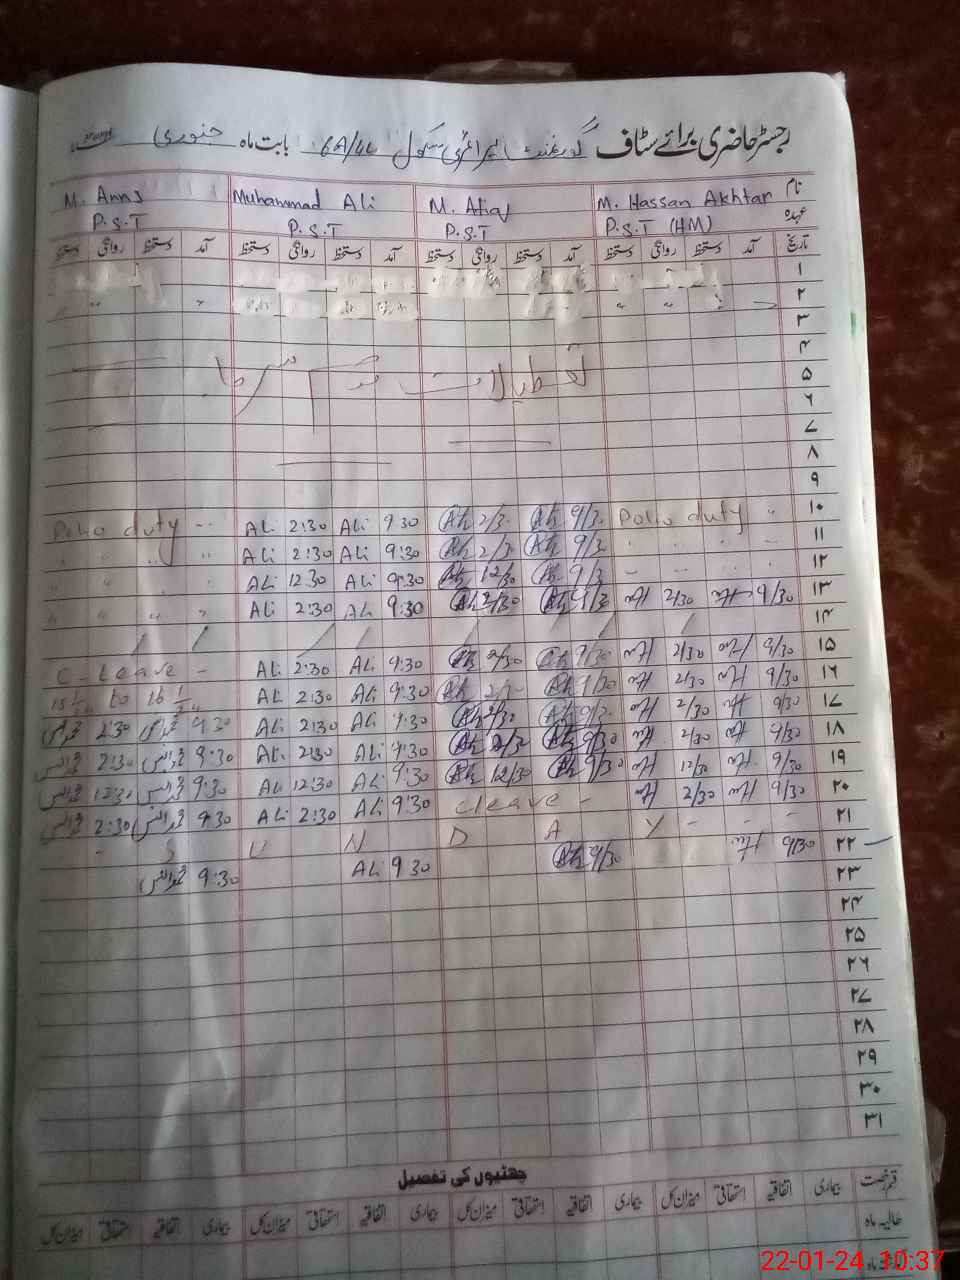 رجسٹر حاضری برائے سٹاف گورنمنٹ پرائمری سکول 6A/4L بابت ماہ جنوری
نام M. Hassan Akhtar M. Atiq Muhammad Ali M. Anns
عہدہ P.S.T (HM) P.S.T P.S.T P.S.T
تاریخ آمد دستخط روانگی دستخط آمد دستخط روانگی دستخط آمد دستخط روانگی دستخط آمد دستخط روانگی دستخط
۱
۲ " " " "
۳
۴
تعطیلات موسم سرما
۵
۶
۷
۸
۹
Polio duty " Ali 2:30 Ali 9:30 2/30 9/30 Polio duty " ۱۰
" " " Ali 2:30 Ali 9:30 2/30 9/30 ۱۱
" " " Ali 12:30 Ali 9:30 12/30 9/30 ۱۲
" " " Ali 2:30 Ali 9:30 2/30 9/30 2/30 9/30 ۱۳
۱۴
C-leave - Ali 2:30 Ali 9:30 2/30 9/30 2/30 9/30 ۱۵
15/1 to 16/1 Ali 2:30 Ali 9:30 2/30 9/30 2/30 9/30 ۱۶
2:30 9:30 Ali 2:30 Ali 9:30 2/30 9/30 2/30 9/30 ۱۷
محمد انس 2:30 محمد انس 9:30 Ali 2:30 Ali 9:30 2/30 9/30 2/30 9/30 ۱۸
محمد انس 12:30 محمد انس 9:30 Ali 12:30 Ali 9:30 12/30 9/30 12/30 9/30 ۱۹
محمد انس 2:30 محمد انس 9:30 Ali 2:30 Ali 9:30 C leave - 2/30 9/30 ۲۰
- - S U N D A Y - - - ۲۱
محمد انس 9:30 Ali 9:30 9/30 9/30 ۲۲
۲۳
۲۴
۲۵
۲۶
۲۷
۲۸
۲۹
۳۰
۳۱
چھٹیوں کی تفصیل
قسم رخصت بیماری اتفاقیہ استحقاقی میزان کل بیماری اتفاقیہ استحقاقی میزان کل بیماری اتفاقیہ استحقاقی میزان کل بیماری اتفاقیہ استحقاقی میزان کل
حالیہ ماہ
22-01-24 10:37